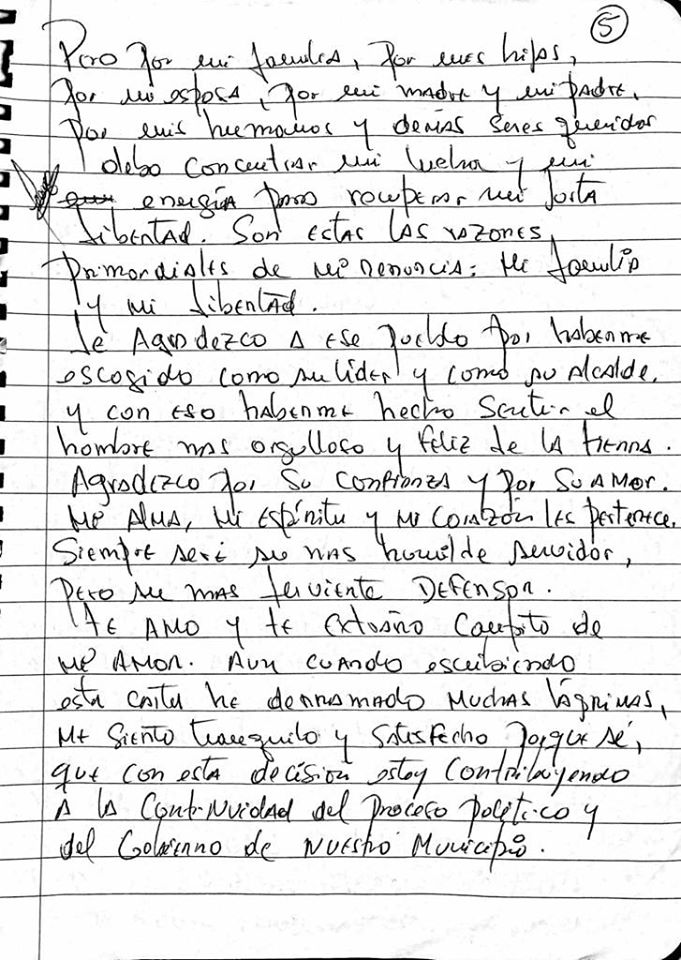 5
Pero por mi familia, por mis hijos,
por mi esposa, por mi madre y mi padre,
por mis hermanos y demás seres queridos
debo concentrar mi lucha y mi
energía para recuperar mi justa
libertad. Son estas las razones
primordiales de mi renuncia: Mi familia
y mi libertad.
Le Agradezco a ese pueblo por haberme
escogido como su lider y como su alcalde,
y con eso haberme hecho sentir el
hombre mas orgulloso y feliz de la tierra.
Agradezco por su confianza y por su amor.
Mi alma, mi espíritu y mi corazón les pertenece.
Siempre seré su mas humilde servidor,
pero su mas ferviente defensor.
Te amo y te extraño Campito de
mi amor. Aun cuando escribiendo
esta carta he derramado muchas lágrimas,
me siento tranquilo y satisfecho porque sé,
que con esta decisión estoy contribuyendo
a la continuidad del proceso político y
del Gobierno de nuestro Municipio.